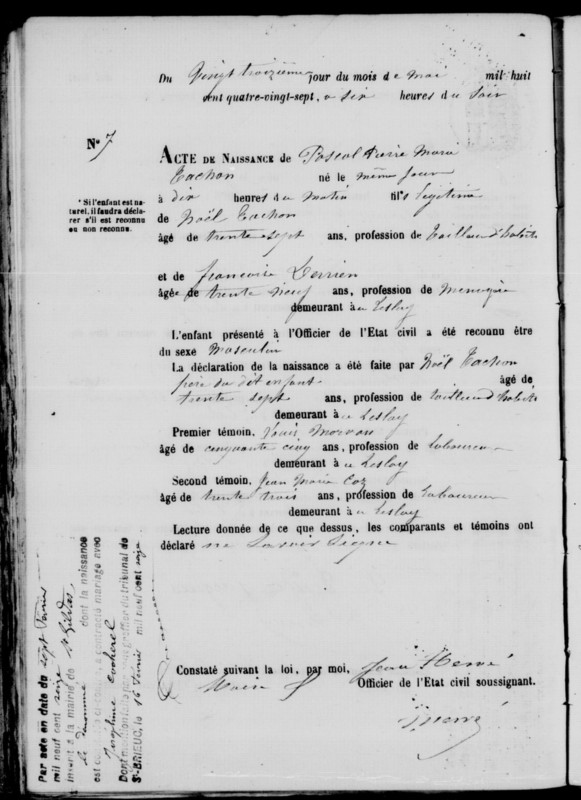 Du Vingt troizième jour du mois de mai mil huit
cent quatre-vingt-sept, a six heures du Soir
N° 7
ACTE DE NAISSANCE de Pascal Pierre Marie
Tachon né le même jour
à dix heures du Matin fils légitime
* Si l'enfant est na-
turel, il faudra décla-
rer s'il est reconnu
ou non reconnu.
de Noël Tachon
âgé de trente sept ans, profession de tailleur d'habits
et de Françoise Derrien
âgée de trente neuf ans, profession de Menagère
demeurant à u Leslay
L'enfant présenté à l'Officier de l'Etat civil a été reconnu être
du sexe Masculin
La déclaration de la naissance a été faite par Noël Tachon
père du dit enfant âgé de
trente sept ans, profession de tailleur d'habits
demeurant à u Leslay
Premier témoin, Louis Morvan
âgé de cinquante cinq ans, profession de Laboureur
demeurant à u Leslay
Second témoin, Jean Marie Coz
âgé de trente trois ans, profession de Laboureur
demeurant à u Leslay
Lecture donnée de ce que dessus, les comparants et témoins ont
déclaré ne Savoir Signer
Constaté suivant la loi, par moi, Jean Hervé
Maire Officier de l'Etat civil soussignant.
Hervé
Par acte en date du sept Février
mil neuf cent seize
inscrit à la mairie de St Gildas
le dénommé dont la naissance
est a contracté mariage avec
Joséphine
Dont mention faite par greffier du tribunal de
St-BRIEUC, le 16 Février mil neuf cent seize